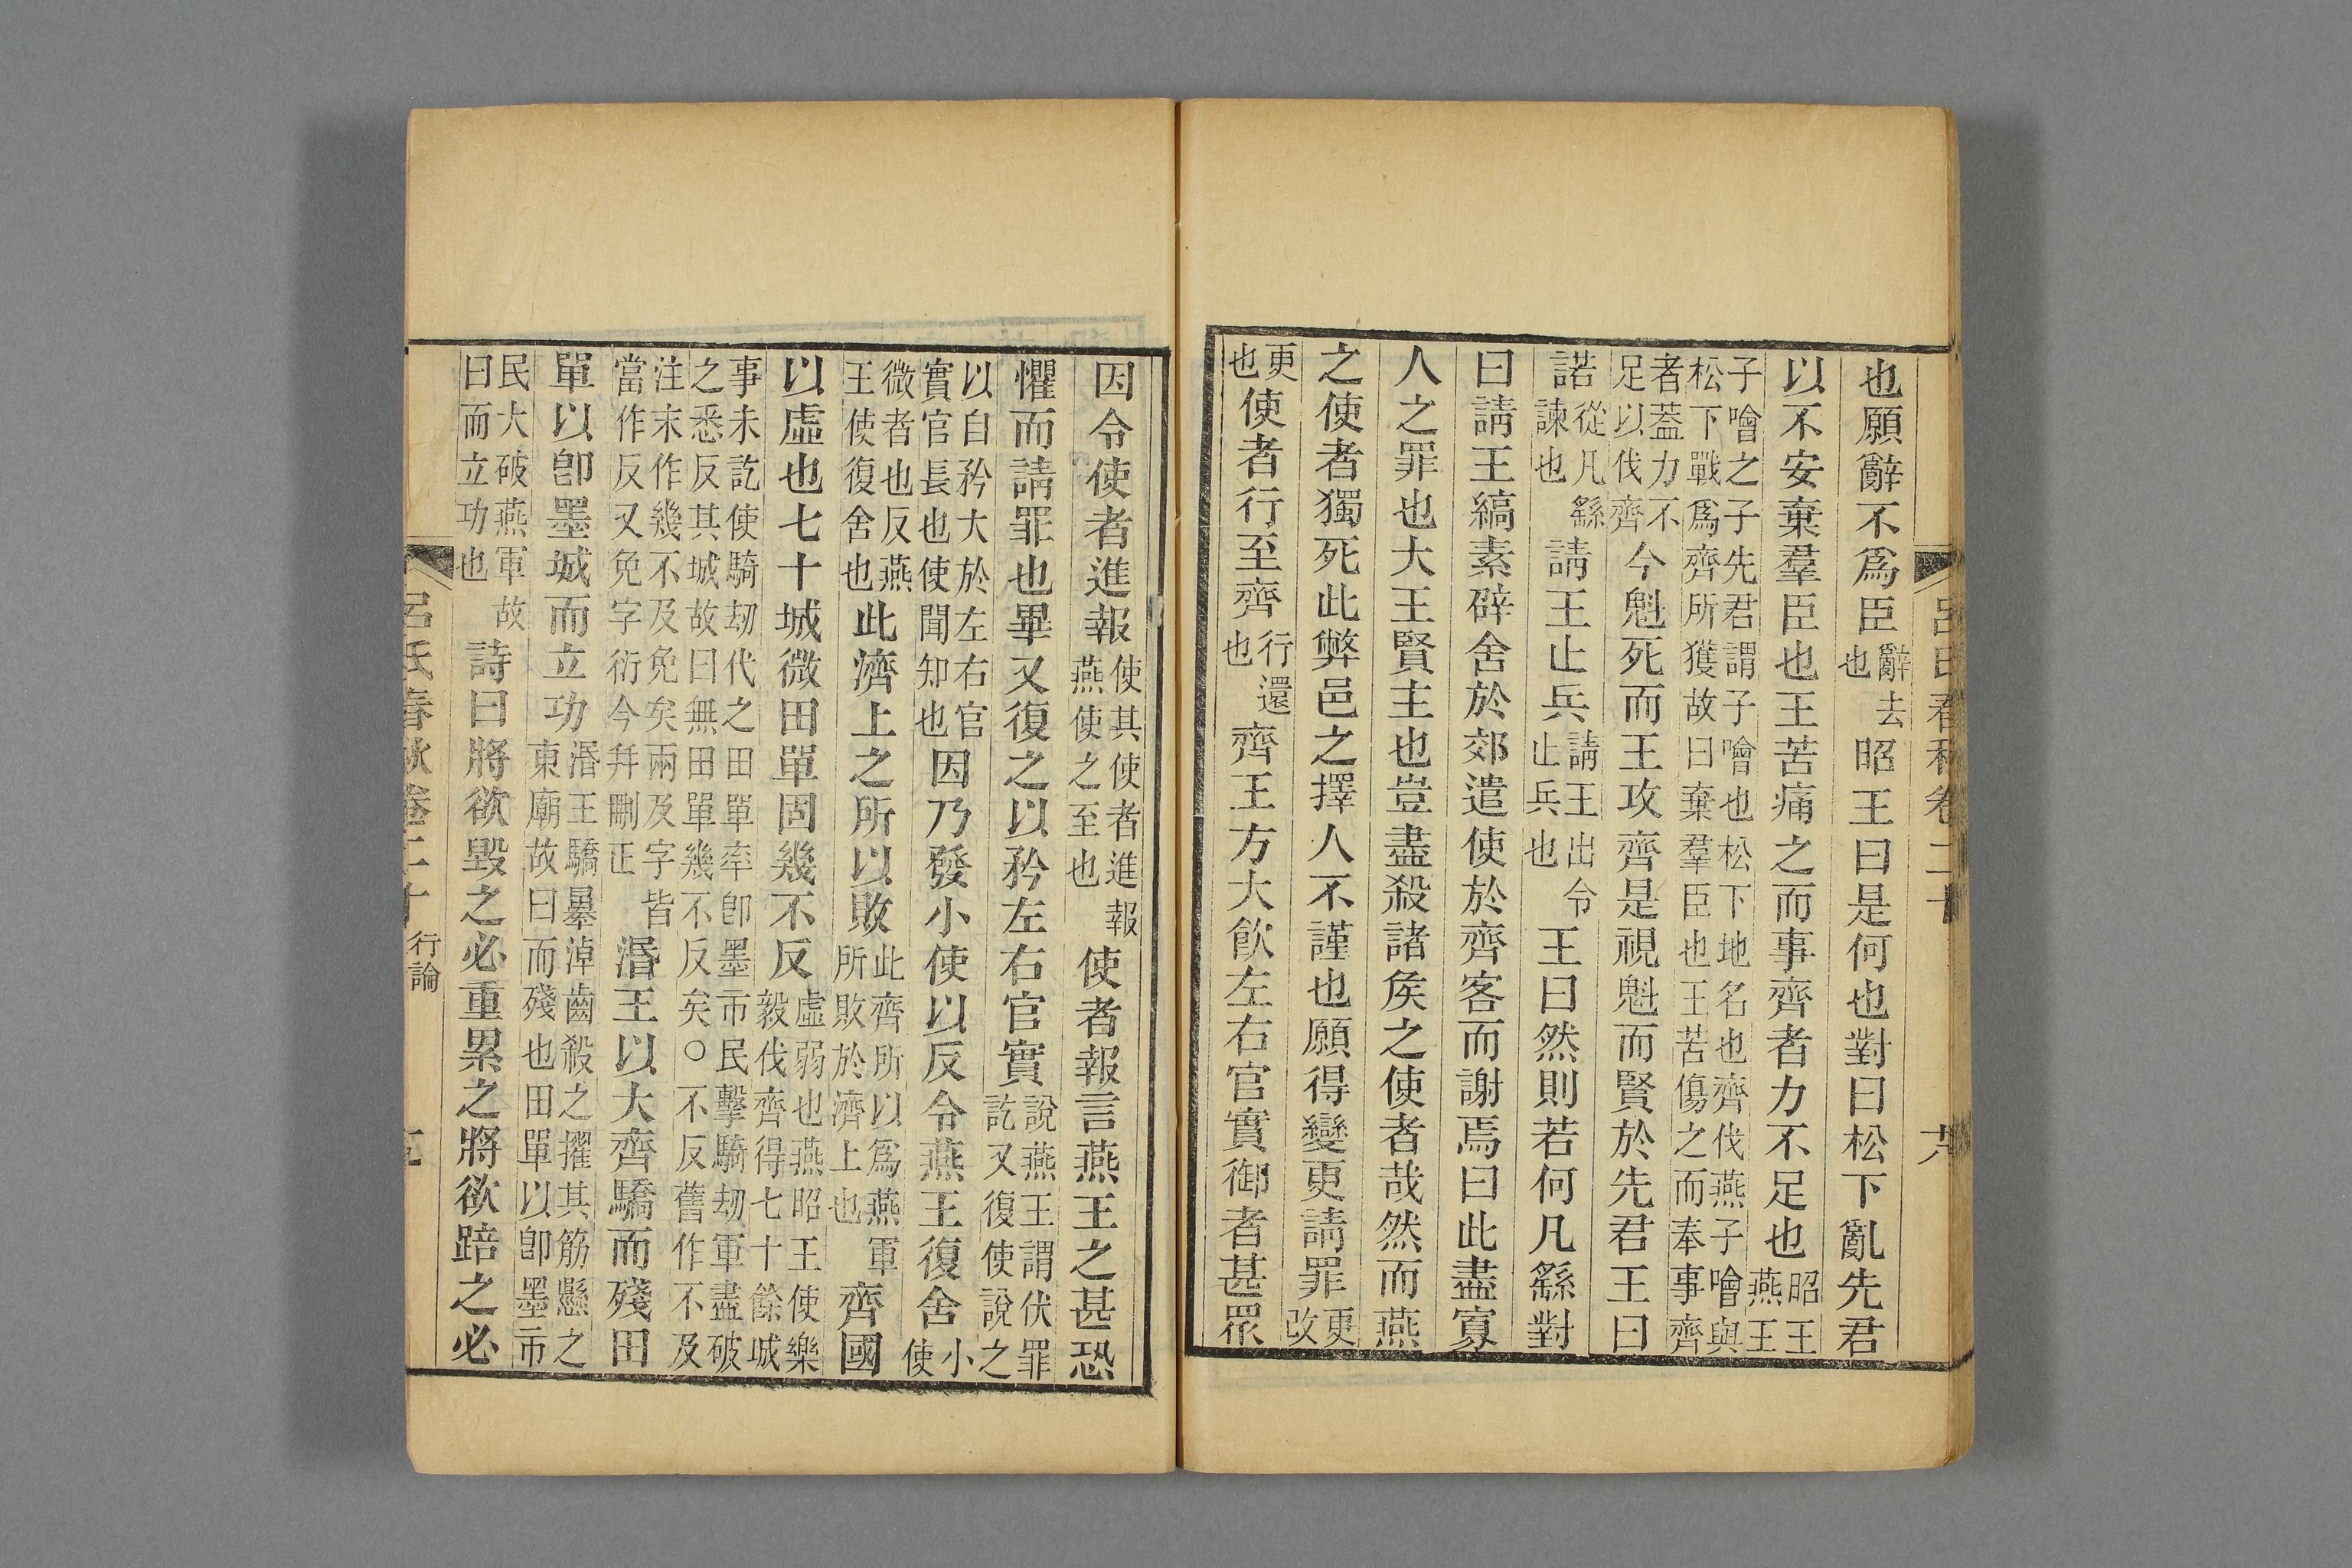 呂氏春秋卷二十
也願辭不爲臣辭去也昭王曰是何也對曰松下亂先君
以不安棄羣臣也王苦痛之而事齊者力不足也昭王燕王
子噲之子先君謂子噲也松下地名也齊伐燕子噲與松下戰爲齊所獲故曰棄羣臣也王苦傷之而奉事齊
者蓋力不足以伐齊今魁死而王攻齊是視魁而賢於先君王曰
諾從凡繇諫也請王止兵請王出令止兵也王曰然則若何凡繇對
曰請王縞素辟舍於郊遣使於齊客而謝焉曰此盡寡
人之罪也大王賢主也豈盡殺諸矦之使者哉然而燕
之使者獨死此弊邑之擇人不謹也願得變更請罪更改
更也使者行至齊行還也齊王方大飲左右官實御者甚眾
因令使者進報使其使者進報燕使之至也使者報言燕王之甚恐
懼而請罪也畢又復之以矜左右官實說燕王謂伏罪訖又復使說之
以自矜大於左右官實官長也使聞知也因乃發小使以反令燕王復舍小使
微者也反燕王使復舍也此濟上之所以敗此齊所以爲燕軍所敗於濟上也齊國
以虛也七十城微田單固幾不反虛弱也燕昭王使樂毅伐齊得七十餘城
事未訖使騎劫代之田單率卽墨市民擊騎劫軍盡破之悉反其城故曰無田單幾不反矣○不反舊作不及
注末作幾不及免矣兩及字皆當作反又免字衍今幷刪正湣王以大齊驕而殘田
單以卽墨城而立功湣王驕暴淖齒殺之擢其筋懸之東廟故曰而殘也田單以卽墨市
民大破燕軍故曰而立功也詩曰將欲毀之必重累之將欲踣之必
呂氏春秋卷二十 行論